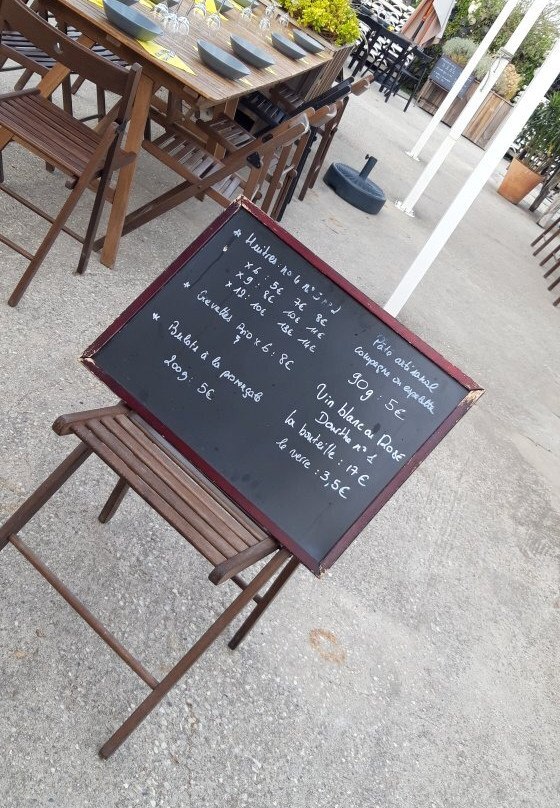 * Huitres: n°4 n°3
x6: 5€ 7€ 8€
x9: 8€ 10€ 11€
10€
* Crevettes Bio x6: 8€
* Bulots à la
200g: 5€
Pâté artisanal
campagne ou espelette
90g: 5€
Vin blanc ou Rosé
Dourthe n°1
la bouteille: 17€
le verre: 3,5€